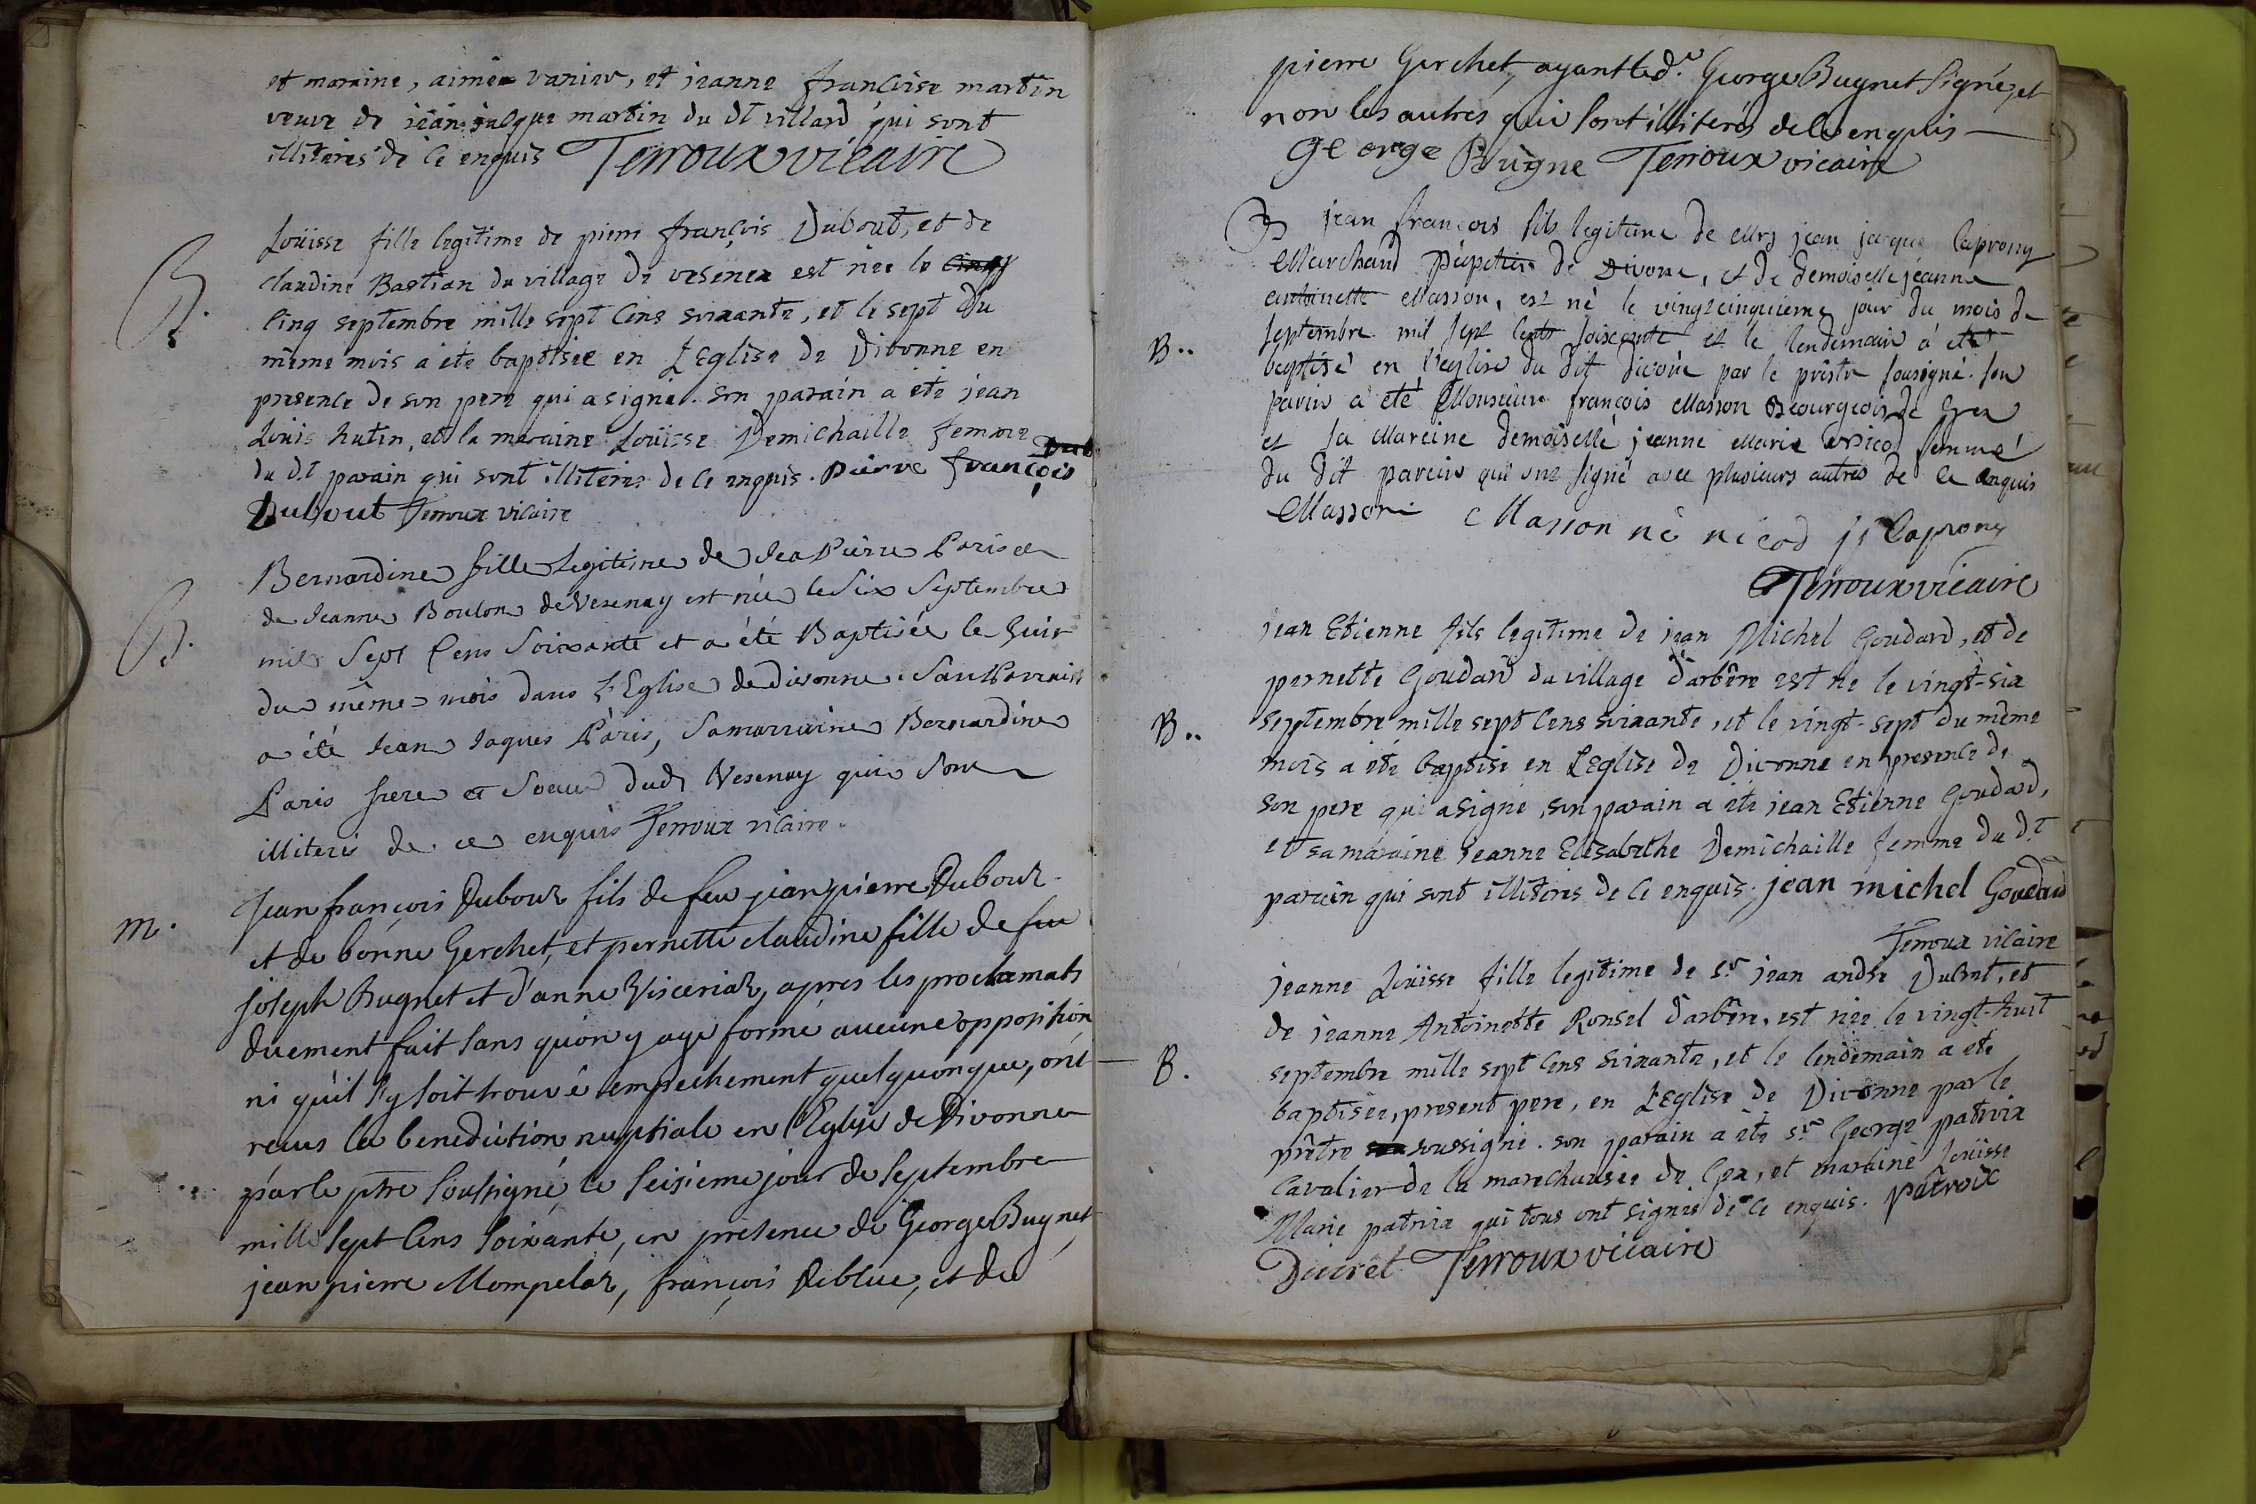 et maraine, aimée vanier, et jeanne françoise martin
veuve de jean jacque martin du dt villard qui sont
illiterés de ce enquis Terroux vicaire
B.
Loüise fille legitime de pierre françois Dubout, et de
claudine Bastian du village de vesenex est née le cinq
cinq septembre mille sept cens soixante, et le sept du
même mois a été baptisée en L'Eglise de Divonne en
presence de son pere qui a signé. son parain a été jean
Louis hutin, et la maraine Loüise Demichaille femme
du d.t parain qui sont illiterés de ce enquis. Pierre françois
Dubout Terroux vicaire
B.
Bernardine fille Legitime de Jea Pierre Paris et
de Jeanne Boulon de Vesenay est née le Six Septembre
mil Sept Cens Soixante et a été Baptisée le huit
du même mois dans L'Eglise de Divonne. Son Parrain
a été Jean Jaques Paris, Sa marraine Bernardine
Paris frere et Soeur dudt Vesenay qui Sont
illiterés de ce enquis Terroux vicaire.
m.
Jean françois Dubout fils de feu jean pierre Dubout
et de bonne Gerchet, et pernette claudine fille de feu
joseph Bugnet et d'anne Visceriat, apres les proclamats
duement fait sans qu'on y aye formé aucune opposition
ni qu'il s'y soit trouvé empechement quelquonque, ont
reçus la benediction nuptiale en l'Eglise de Divonne
par le ptre soussigné le seisieme jour de septembre
mille sept cens soixante, en presence de George Bugnet,
jean pierre Mompelat, françois Deblue, et de
pierre Gerchet, ayant led.t George Bugnet signé, et
non les autres qui sont illiterés de ce enquis
George Bugne Terroux vicaire
B..
jean françois fils legitime de Mrs jean jacque Caprony
Marchand papetier de Divone, et de demoiselle jeanne
antoinette Masson, est né le vingtcinquieme jour du mois de
septembre mil sept cents soixcante et le lendemain à été
baptisé en l'eglise du dit divone par le prêtre sousigné. son
parein a été Monsieur françois Masson Bourgeois de Gex
et sa Mareine demoiselle jeanne Marie Nicod femme
du dit parein qui ont signé avec plusieurs autres de ce enquis
Masson Masson né nicod jj Caprony
Terroux vicaire
B..
jean Etienne fils legitime de jean Michel Goudard, et de
pernette Goudard du village d'arbère est né le vingt-six
septembre mille sept cens soixante, et le vingt-sept du même
mois a été baptisé en L'Eglise de Divonne en presence de
son pere qui a signé, son parain a été jean Etienne Goudard,
et sa maraine jeanne Elisabethe Demichaille femme du d.t
parain qui sont illiterés de ce enquis. jean michel Goudard
Terroux vicaire
B.
jeanne Loüise fille legitime de sr jean andré Dubout, et
de jeanne Antoinette Ronsel d'arbère, est née le vingt-huit
septembre mille sept cens soixante, et le lendemain a été
baptisée, present pere, en L'Eglise de Divonne par le
prêtre soussigné. son parain a été sr George patrvix
cavalier de la marechausée de Gex, et maraine Loüise
Marie patroix qui tous ont signés de ce enquis. patroix
Terroux vicaire